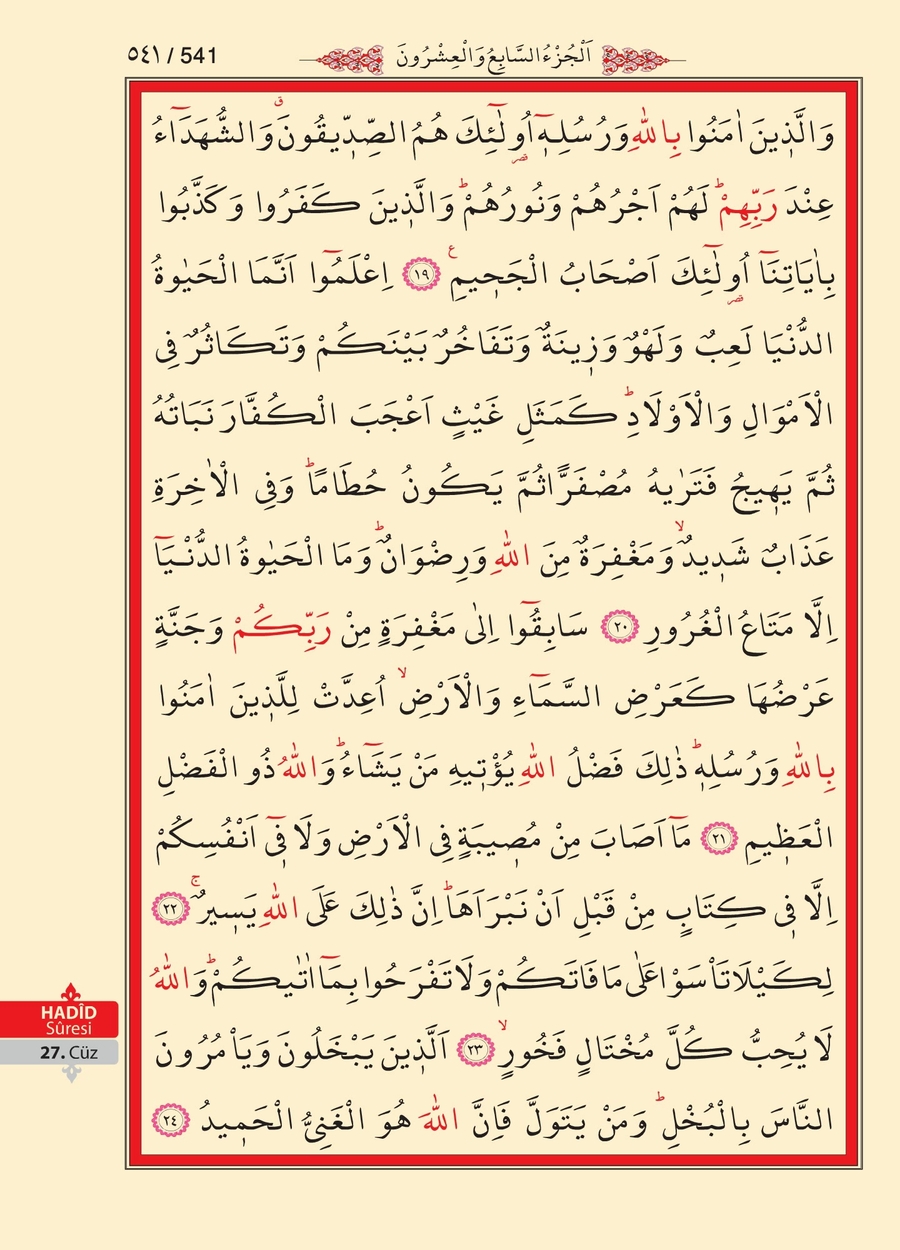 ٥٤١ / 541
اَلْجُزْءُ السَّابِعُ وَالْعِشْرُونَ
وَالَّذ۪ينَ اٰمَنُوا بِاللّٰهِ وَرُسُلِه۪ٓ اُو۬لٰٓئِكَ هُمُ الصِّدّ۪يقُونَۗ وَالشُّهَدَٓاءُ
عِنْدَ رَبِّهِمْۜ لَهُمْ اَجْرُهُمْ وَنُورُهُمْۜ وَالَّذ۪ينَ كَفَرُوا وَكَذَّبُوا
بِاٰيَاتِنَٓا اُو۬لٰٓئِكَ اَصْحَابُ الْجَح۪يمِ۟ ﴿١٩﴾ اِعْلَمُٓوا اَنَّمَا الْحَيٰوةُ
الدُّنْيَا لَعِبٌ وَلَهْوٌ وَز۪ينَةٌ وَتَفَاخُرٌ بَيْنَكُمْ وَتَكَاثُرٌ فِي
الْاَمْوَالِ وَالْاَوْلَادِۜ كَمَثَلِ غَيْثٍ اَعْجَبَ الْكُفَّارَ نَبَاتُهُ
ثُمَّ يَه۪يجُ فَتَرٰيهُ مُصْفَرًّا ثُمَّ يَكُونُ حُطَامًاۜ وَفِي الْاٰخِرَةِ
عَذَابٌ شَد۪يدٌۙ وَمَغْفِرَةٌ مِنَ اللّٰهِ وَرِضْوَانٌۜ وَمَا الْحَيٰوةُ الدُّنْيَٓا
اِلَّا مَتَاعُ الْغُرُورِ ﴿٢٠﴾ سَابِقُٓوا اِلٰى مَغْفِرَةٍ مِنْ رَبِّكُمْ وَجَنَّةٍ
عَرْضُهَا كَعَرْضِ السَّمَٓاءِ وَالْاَرْضِۙ اُعِدَّتْ لِلَّذ۪ينَ اٰمَنُوا
بِاللّٰهِ وَرُسُلِه۪ۜ ذٰلِكَ فَضْلُ اللّٰهِ يُؤْت۪يهِ مَنْ يَشَٓاءُۜ وَاللّٰهُ ذُو الْفَضْلِ
الْعَظ۪يمِ ﴿٢١﴾ مَٓا اَصَابَ مِنْ مُص۪يبَةٍ فِي الْاَرْضِ وَلَا ف۪ٓي اَنْفُسِكُمْ
اِلَّا ف۪ي كِتَابٍ مِنْ قَبْلِ اَنْ نَبْرَاَهَاۜ اِنَّ ذٰلِكَ عَلَى اللّٰهِ يَس۪يرٌۚ ﴿٢٢﴾
لِكَيْلَا تَأْسَوْا عَلٰى مَا فَاتَكُمْ وَلَا تَفْرَحُوا بِمَٓا اٰتٰيكُمْۜ وَاللّٰهُ
لَا يُحِبُّ كُلَّ مُخْتَالٍ فَخُورٍۙ ﴿٢٣﴾ اَلَّذ۪ينَ يَبْخَلُونَ وَيَأْمُرُونَ
النَّاسَ بِالْبُخْلِۜ وَمَنْ يَتَوَلَّ فَاِنَّ اللّٰهَ هُوَ الْغَنِيُّ الْحَم۪يدُ ﴿٢٤﴾
HADÎD
Sûresi
27. Cüz